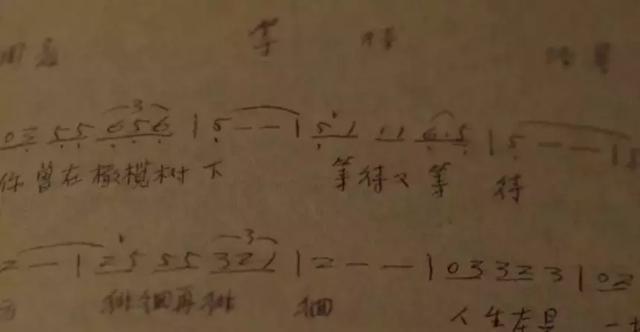 等 待
03 55 656 | 5 - - | 51 11 65 | 5 - - | 5
你曾在橄榄树下 等待又等 待
2 - | 25 55 321 | 2 - - | 03 32 3 | 02
徘徊再徘 徊 人生